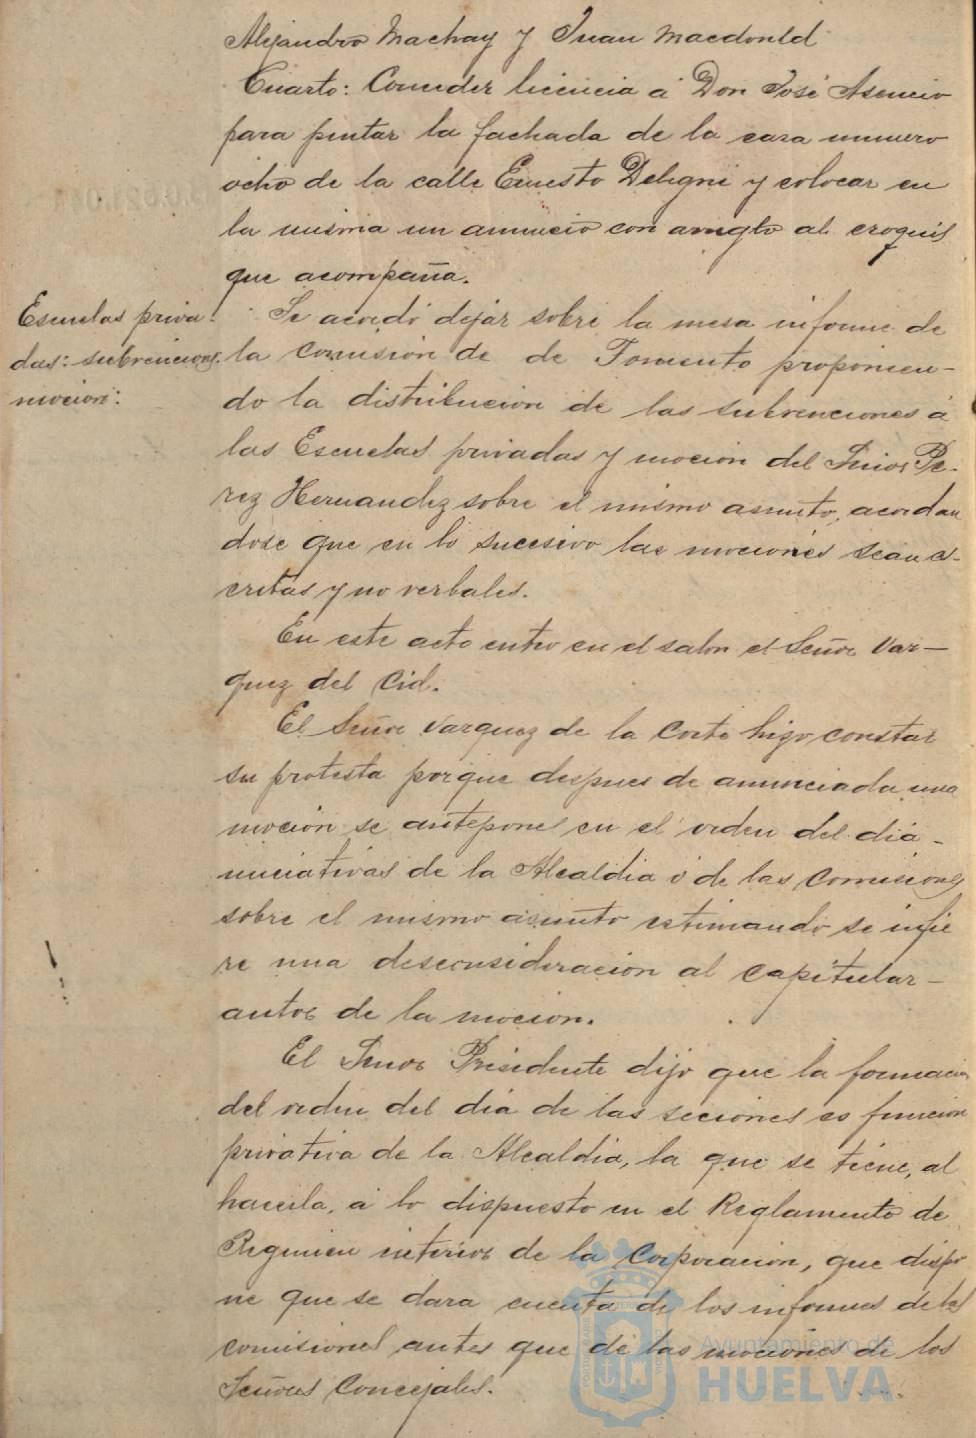 Alejandro Machay y Juan Macdonld
Cuarto: Conceder licencia á Don José Asencio
para pintar la fachada de la casa numero
ocho de la calle Ernesto Deligni y colocar en
la misma un anuncio con arreglo al croquis
que acompaña.
Escuelas priva-
das: subvenciones.
mocion:
Se acordó dejar sobre la mesa informe de
la comisión de de Fomento proponien-
do la distribucion de las subvenciones á
las Escuelas privadas y mocion del Señor Pe-
rez Hernandez sobre el mismo asunto, acordan
dose que en lo sucesivo las mociones sean es-
critas y no verbales.
En este acto entro en el salon el Señor Vaz-
quez del Cid.
El Señor Vazquez de la Corte hizo constar
su protesta porque despues de anunciada una
mocion se antepones en el orden del dia -
iniciativas de la Alcaldia ó de las Comisiones
sobre el mismo asunto estimando se infie
re una desconsideracion al capitular -
autor de la mocion.
El Señor Presidente dijo que la formacion
del orden del dia de las seciones es funcion
privativa de la Alcaldia, la que se tiene, al
hacerla, á lo dispuesto en el Reglamento de
Regimen interior de la Corporacion, que dispo
ne que se dara cuenta de los informes de las
comisiones antes que de las mociones de los
Señores Concejales.
Ayuntamiento de
HUELVA